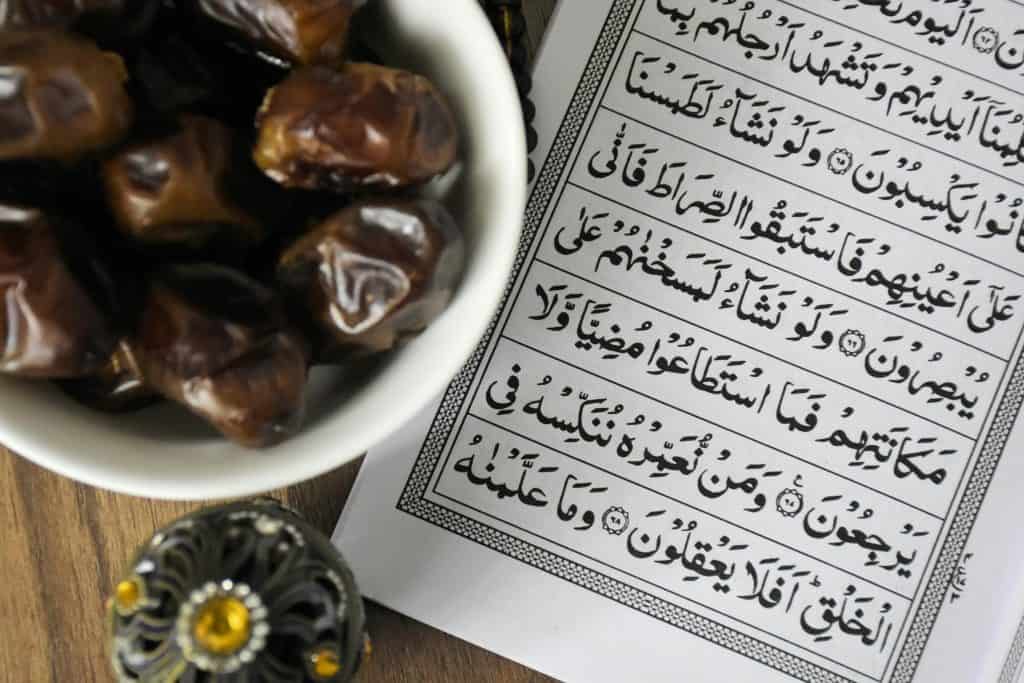 اَلْيَوْمَ
اَيْدِيْهِمْ وَتَشْهَدُ اَرْجُلُهُمْ بِمَا
انُوْا يَكْسِبُوْنَ ۝٦٥ وَلَوْ نَشَآءُ لَطَمَسْنَا
عَلٰۤى اَعْيُنِهِمْ فَاسْتَبَقُوا الصِّرَاطَ فَاَنّٰى
يُبْصِرُوْنَ ۝٦٦ وَلَوْ نَشَآءُ لَمَسَخْنٰهُمْ عَلٰى
مَكَانَتِهِمْ فَمَا اسْتَطَاعُوْا مُضِيًّا وَّلَا
يَرْجِعُوْنَ ۝٦٧ وَمَنْ نُّعَمِّرْهُ نُنَكِّسْهُ فِى
الْخَلْقِ ؕ اَفَلَا يَعْقِلُوْنَ ۝٦٨ وَمَا عَلَّمْنٰهُ